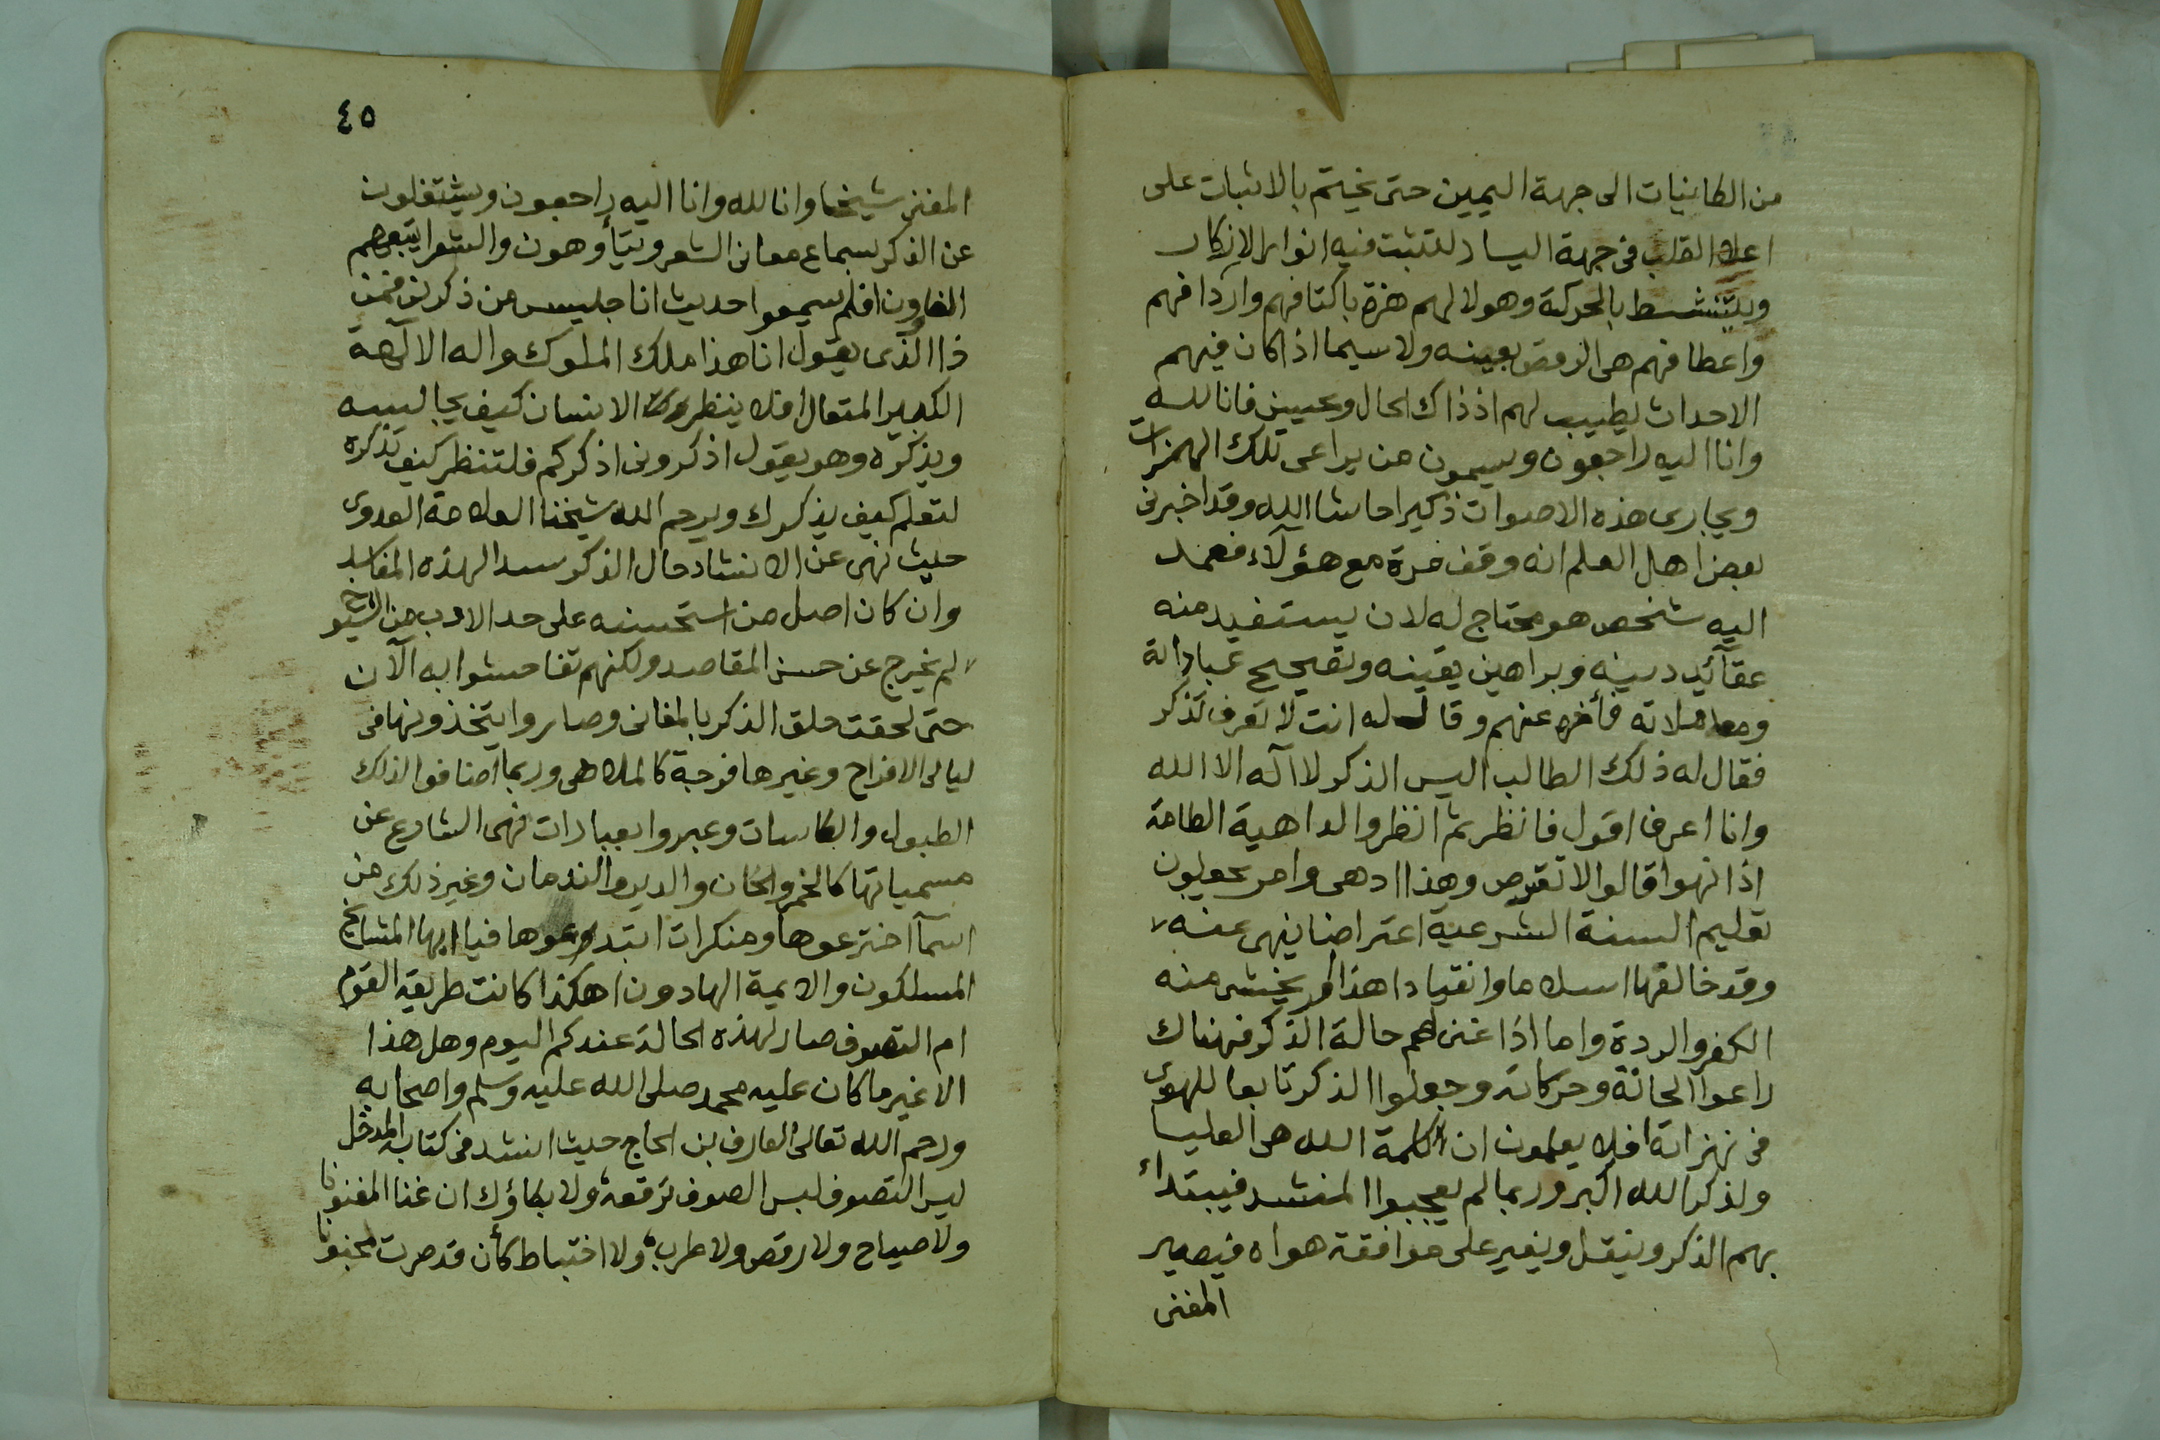 من الكائنات الى جهة اليمين حتى يختم بالاثبات على
اعلا القلب فى جهة اليسار لتثبت فيه انوار الاذكار
وليتنشط بالحركة وهولا لهم هزة باكتافهم واردافهم
واعطافهم هى الرقص بعينه ولا سيما اذا كان فيهم
الاحداث يطيب لهم اذ ذاك الحال فانا لله
وانا اليه راجعون ويسمون من يراعى تلك الهمزات
ويجارى هذه الاصوات ذكيرا حاشا الله وقد اخبرنى
بعض اهل العلم انه وقف مرة مع هؤلآء فعمد
اليه شخص هو محتاج له لان يستفيد منه
عقآئد دينيه وبراهين يقينه وتصحيح عباداته
ومعاملاته فأخره عنهم وقال له انت لا تعرف تذكر
فقال له ذلك الطالب اليس الذكر لا آله الا الله
وانا اعرف اقول فانظر ثم انظر والداهية الطامة
اذا نهوا قالوا لا تعترض وهذا ادهى وامر يجعلون
تعليم السنة الشرعية اعتراضا ينهى عنه
وقد خالفها اسلاما وانقيادا هذا امر يخشى منه
الكفر والردة واما اذا غنى لهم حالة الذكر فهناك
راعوا الحانه وحركاته وجعلوا الذكر تابعا للهوى
فى نهزاته افلا يعلمون ان كلمة الله هى العليا
ولذكر الله اكبر وربما لم يعجبوا المنشد فيبتدأ
بهم الذكر وينقل ويغير على موافقة هواه فيصير
المغنى
٤٥
المغنى شيخا وانا لله وانا اليه راجعون ويشتغلون
عن الذكر بسماع معانى الشعر ويتأوهون والشعرا يتبعهم
الغاون افلم يسمعوا حديث انا جليس من ذكرنى فمن
ذا الذى يقول انا هذا ملك الملوك واله الآلهة
الكبير المتعال افلا ينظر الانسان كيف يجالسه
ويذكره وهو يقول اذكرونى اذكركم فلتنظر كيف تذكره
لتعلم كيف يذكرك ويرحم الله شيخنا العلامة العدوى
حيث نهى عن الانشاد حال الذكر سدا لهذه المفاسد
وان كان اصل من استحسنه على حد الادب من الشيوخ
لم يخرج عن حسن المقاصد ولكنهم تفاحشوا به الآن
حتى لحقت حلق الذكر بالمغانى وصاروا يتخذونها فى
ليالى الافراح وغيرها فرجة كالملاهى وربما اضافوا لذلك
الطبول والكاسات وعبروا بعبارات نهى الشارع عن
مسمياتها كالخمر والحان والدير والندمان وغير ذلك من
اسمآ اخترعوها ومنكرات ابتدعوها فيا ايها المشايخ
المسلكون والايمة الهادون اهكذا كانت طريقة القوم
ام التصوف صار لهذه الحالة عندكم اليوم وهل هذا
الا غير ما كان عليه محمد صلى الله عليه وسلم واصحابه
ورحم الله تعالى العارف بن الحاج حيث انشد فى كتابه المدخل
ليس التصوف لبس الصوف ترقعه ولا بكاؤك ان غنا المغنونا
ولا صياح ولا رقص ولا طرب ولا اختباط كأن قد صرت مجنونا